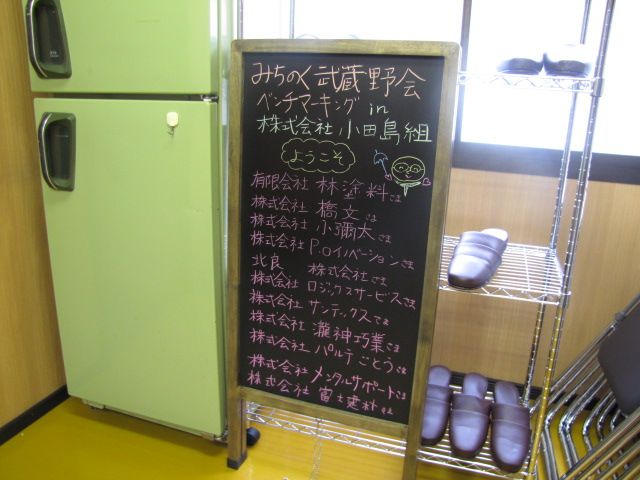 みちのく武蔵野会
ベンチマーキング in
株式会社 小田島組
ようこそ
有限会社 林塗料さま
株式会社 橋文さま
株式会社 小彌太さま
株式会社 P.Oイノベーションさま
北良 株式会社さま
株式会社 ロジックスサービスさま
株式会社 サンテックスさま
株式会社 瀧神巧業さま
株式会社 パルテごとうさま
株式会社 メンタルサポートさま
株式会社 富士建材さま